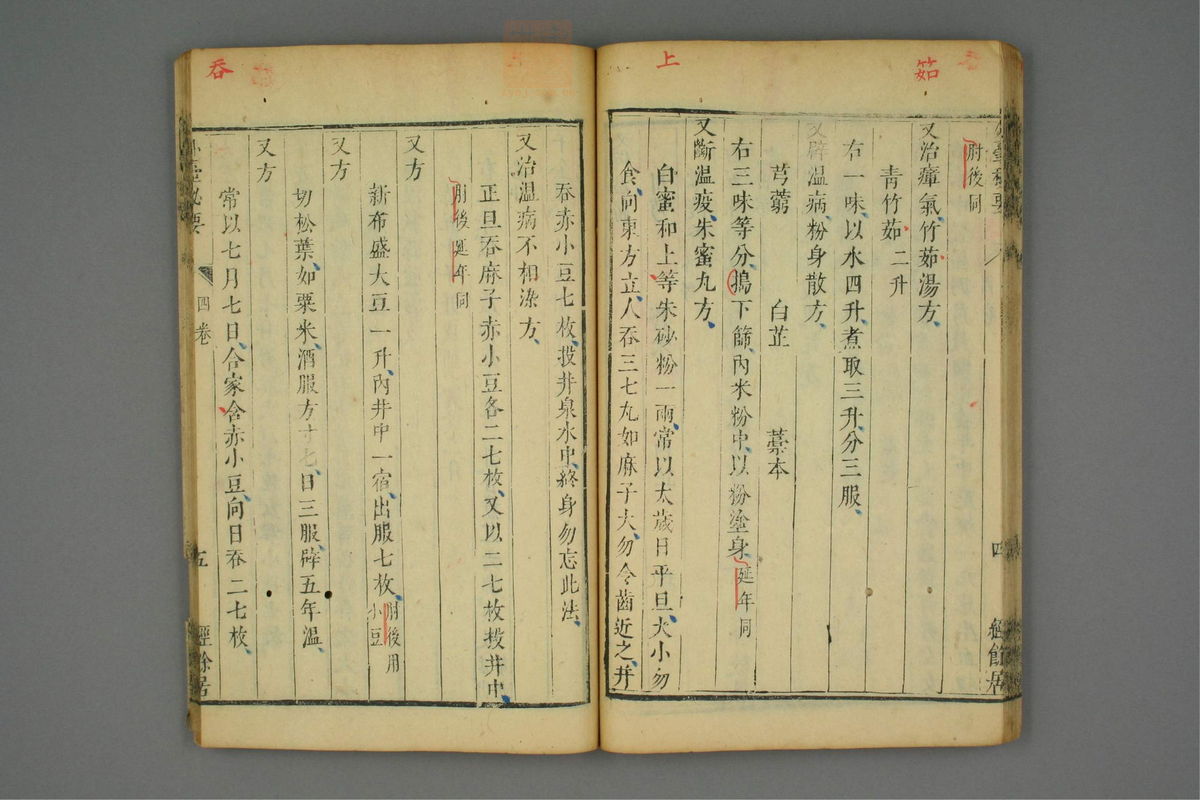 茹
上
肘後同
又治瘴氣竹茹湯方
青竹茹二升
右一味以水四升煮取三升分三服
又辟温病粉身散方
芎藭　白芷　藁本
右三味等分搗下篩內米粉中以粉塗身延年同
又斷温疫朱蜜丸方
白蜜和上等朱砂粉一兩常以太歲日平旦大小勿
食向東方立人吞三七丸如麻子大勿令齒近之并
四
經餘居
吞
吞赤小豆七枚投井泉水中終身勿忘此法
又治温病不相染方
正旦吞麻子赤小豆各二七枚又以二七枚投井中
肘後延年同
又方
新布盛大豆一升內井中一宿出服七枚肘後用小豆
又方
切松葉如粟米酒服方寸七日三服辟五年温
又方
常以七月七日合家含赤小豆向日吞二七枚
外臺秘要
四卷
五
經餘居